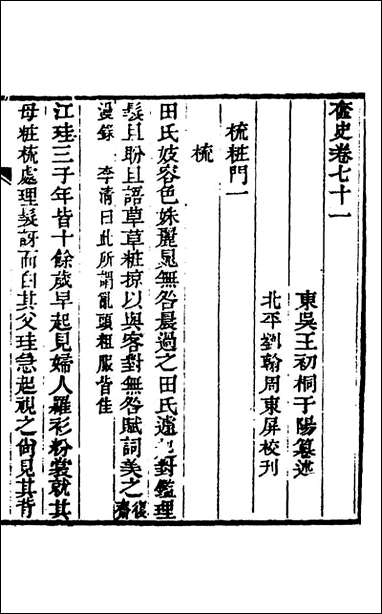 奩史卷七十一
東吳王初桐于陽纂述
北平劉翰周東屏校刊
梳粧門一
梳
田氏妓容色姝麗晁無咎晨過之田氏遽起對鑑理
髮且盼且語草草粧掠以與客對無咎賦詞美之復齋
漫錄　李清曰此所謂亂頭粗服皆佳
江珪三子年皆十餘歲早起見婦人羅衫粉裳就其
母粧梳處理髮訝而白其父珪急起視之尙見其背